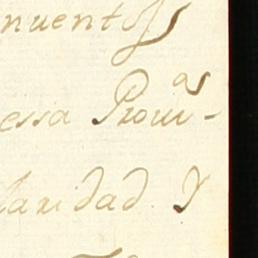 nuentos
essa Proui^a-
laridad. Y